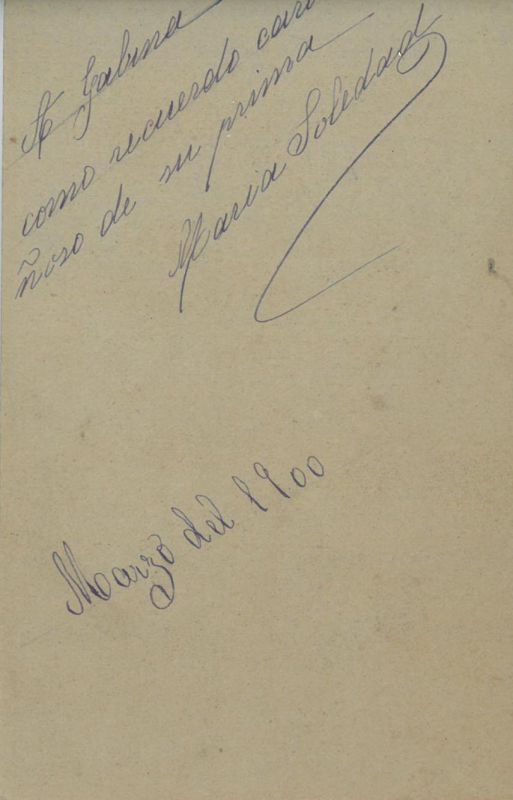 A Gabina
como recuerdo cari
ñoso de su prima
Maria Soledad
Marzo del 1900